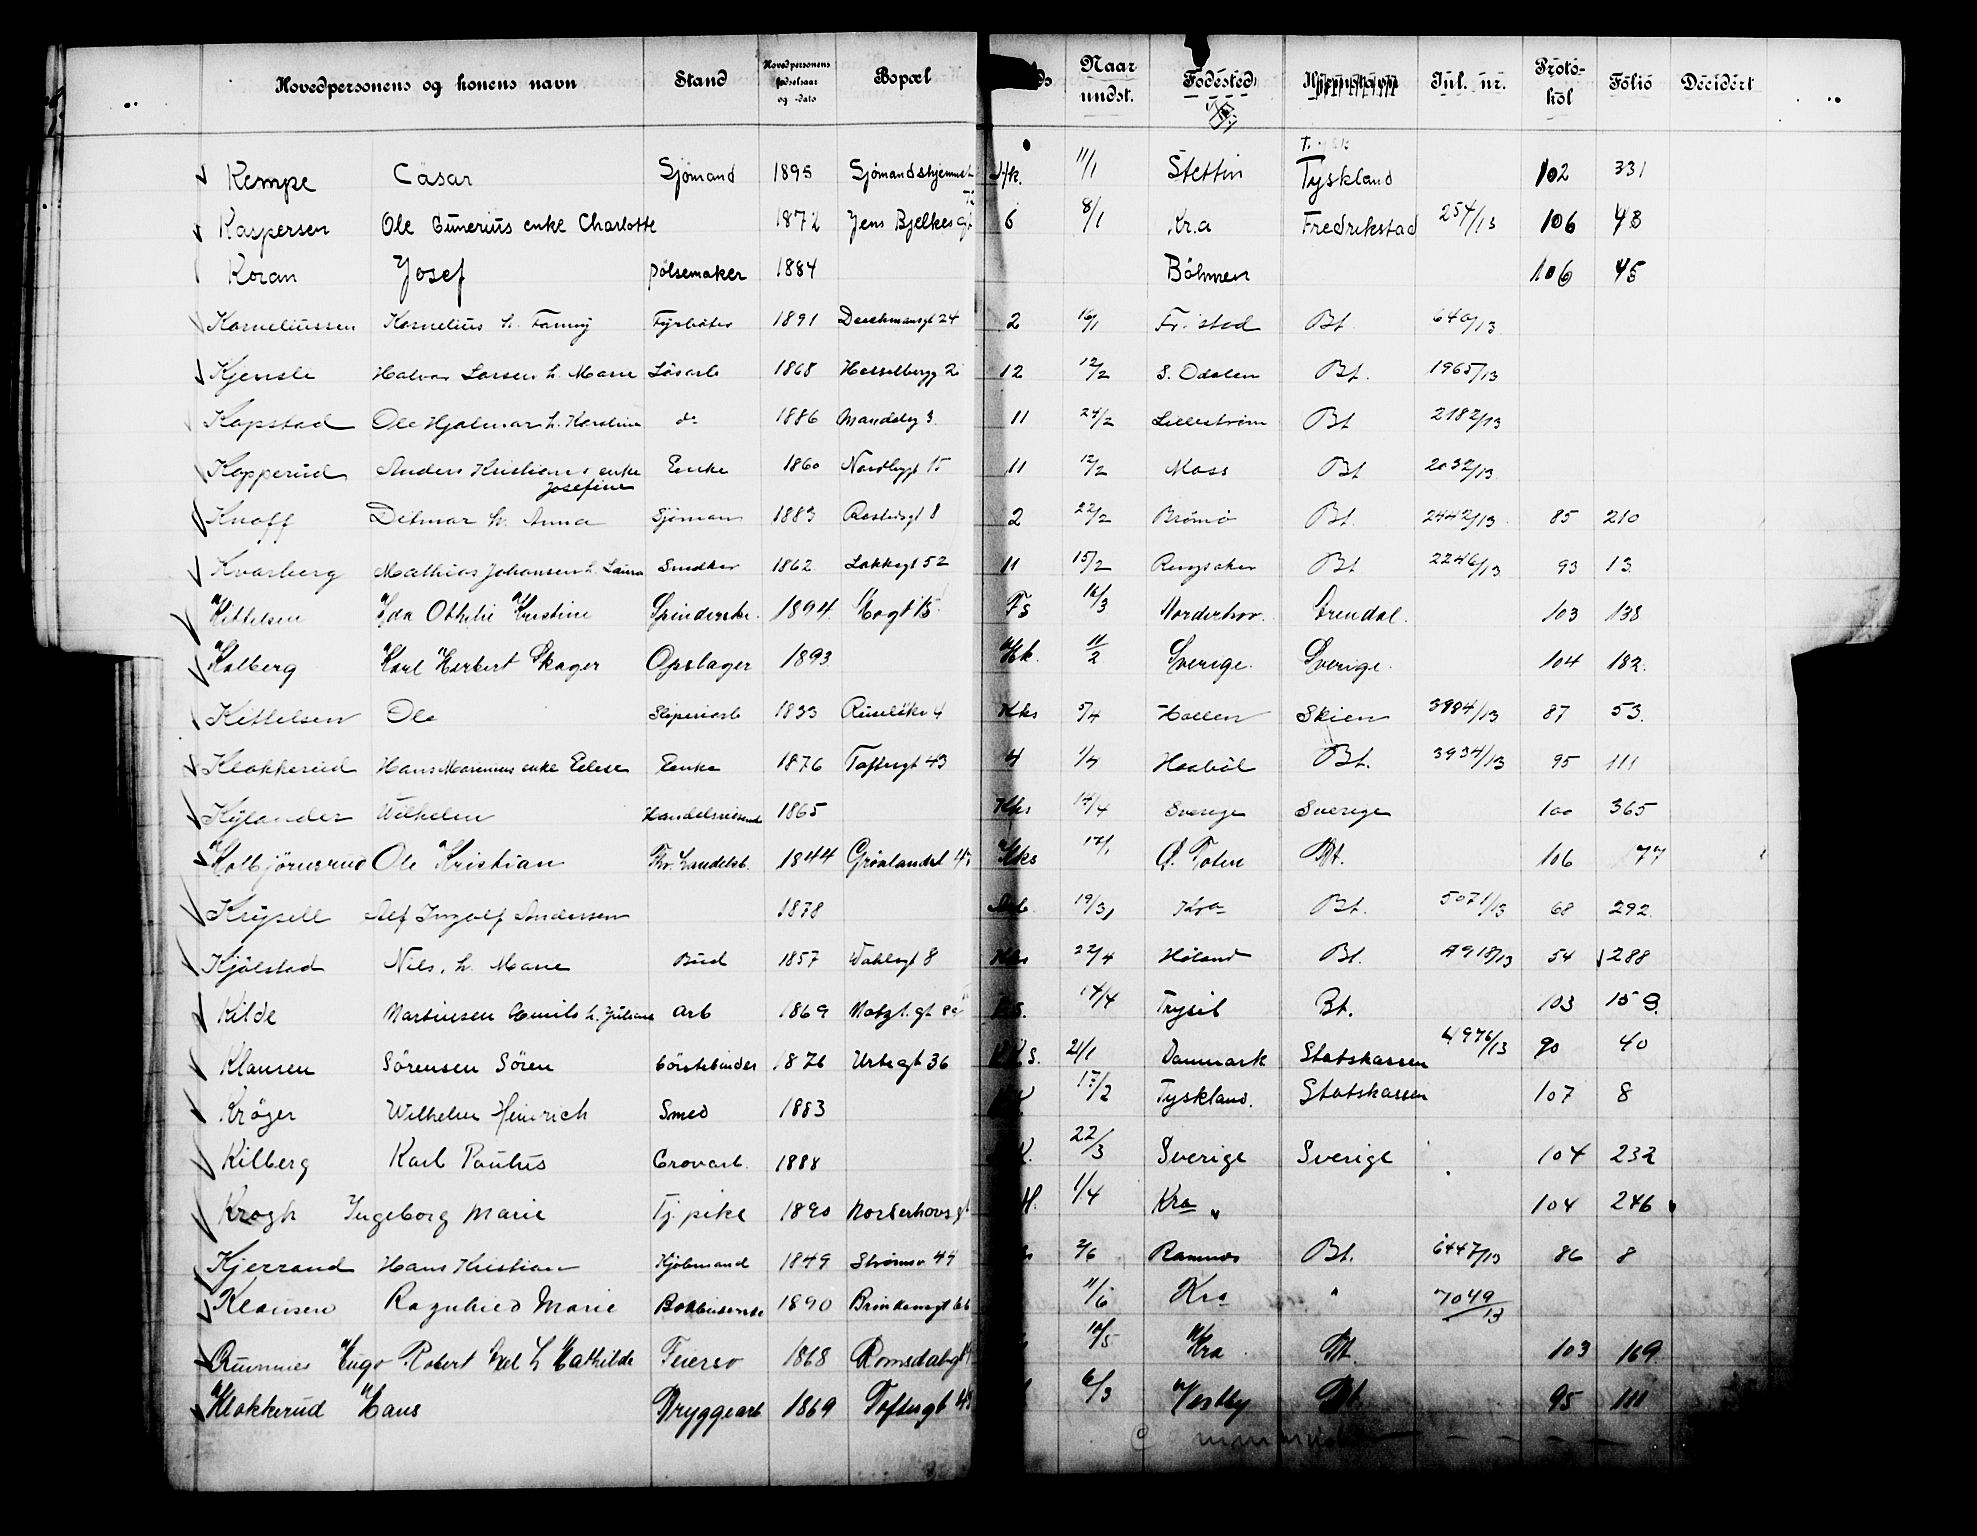 Hovedpersonens og konens navn Stand Hovedpersonens fødselsaar og -dato Bopæl Naar undst. Fødested Jul. nr. Proto-kol Folio Decidert
Kempe Cäsar Sjømand 1895 Sjømandshjemmet Hk. 11/1 Stettin Tyskland 102 331
Kaspersen Ole Gunerius enke Charlotte 1872 Jens Bjelkes gt 6 8/1 Kr.a Fredrikstad 254/13 106 43
Koran Josef pølsemaker 1884 Böhmen 106 45
Korneliussen Kornelius h. Fanny Fyrbøter 1891 Deichmansgt 24 2 16/1 Fr.stad Bt. 640/13
Kjensle Halvor Larsen h. Marie Løsarb 1868 Hesselbergg 2 12 12/2 S. Odalen Bt. 1965/13
Kopstad Ole Hjalmar h. Karoline do 1886 Mandalsg 3 11 24/2 Lillestrøm Bt 2182/13
Kopperud Anders Kristians enke Enke 1860 Nordbygt 15 11 12/2 Moss Bt 2032/13
Josefine
Knoff Ditmar h. Anna Sjøman 1883 2 22/2 Bt. 2442/13 85 210
Kvarberg Mathias Johansen h. Laura Snedker 1862 Lakkegt 52 11 15/2 Ringsaker Bt 2246/13 93 13
Kittelsen Ida Othilie Kristine Spinderske. 1894. Fs 16/3 Norderhov. 103 138
Kolberg Karl Herbert Skager Opslager 1893 Hk. 11/2 Sverige. Sverige. 104 182.
Kittelsen Ole 1833 Ruseløkv 4 Kks 5/4 Hollen Skien 3984/13 87 53.
Klokkerud Hans Marenius enke Elise Enke 1876 Toftesgt 43 4 1/4 Haabøl Bt. 3934/13 95 111
Kylander Wilhelm Handelsreisende 1865 Kks 14/4 Sverige Sverige 100 365
Kolbjørnsrud Ole Kristian Fhv. Landelsb. 1844 Grønlandsl 4 Kks 17/1 Ø. Toten Bt. 106 77
Krysell Alf Ingolf Andersen 1878 19/3 Kra Bt. 5071/13 68 292
Kjølstad Nils, h. Marie Bud 1857 Wahlsgt 8 Kks 22/4 Høland Bt. 4918/13 54 288
Kilde Martinsen Emils h. Juliane arb 1869 Motzf. gt 8 14/4 Trysil Bt. 103 159.
Klausen Sørensen Sören börstebinder 1876 Urtegt 36 21/1 Danmark Statskassen 4976/13 90 40
Krøger Wilhelm Heinrich Smed 1883 17/2 Tyskland. Statskassen 107 8
Kilberg Karl Paulus Grovarb. 1888 K. 22/3 Sverige Sverige 104 232
Krogh Ingeborg Marie Tj. pike 1890 Norderhovsgt H. 1/4 Kra 104 246
Kjerrand Hans Kristian Kjøbmand 1849 Strømsv 44 2/6 Ramnes Bt. 6447/13 86 8
Klausen Ragnhild Marie 1890 Brinkensgt 66 11/6 Kra " 7049/13
Hugo Robert Axel h Mathilde Feiersv 1868 Romsdalsgt 10/5 Kra Bt. 103 169
Klokkerud Hans Bryggearb 1869 Toftesgt 43 6/3 Vestby Bt. 95 111